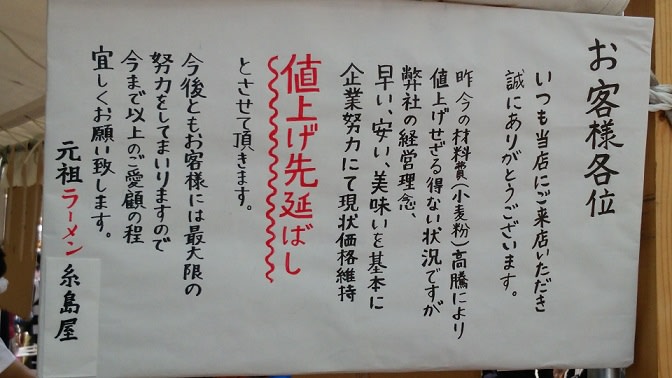 お客様各位
いつも当店にご来店いただき
誠にありがとうございます。
昨今の材料費(小麦粉)高騰により
値上げせざる得ない状況ですが
弊社の経営理念、
早い、安い、美味いを基本に
企業努力にて現状価格維持
値上げ先延ばし
とさせて頂きます。
今後ともお客様には最大限の
努力をしてまいりますので
今まで以上のご愛顧の程
宜しくお願い致します。
元祖ラーメン糸島屋